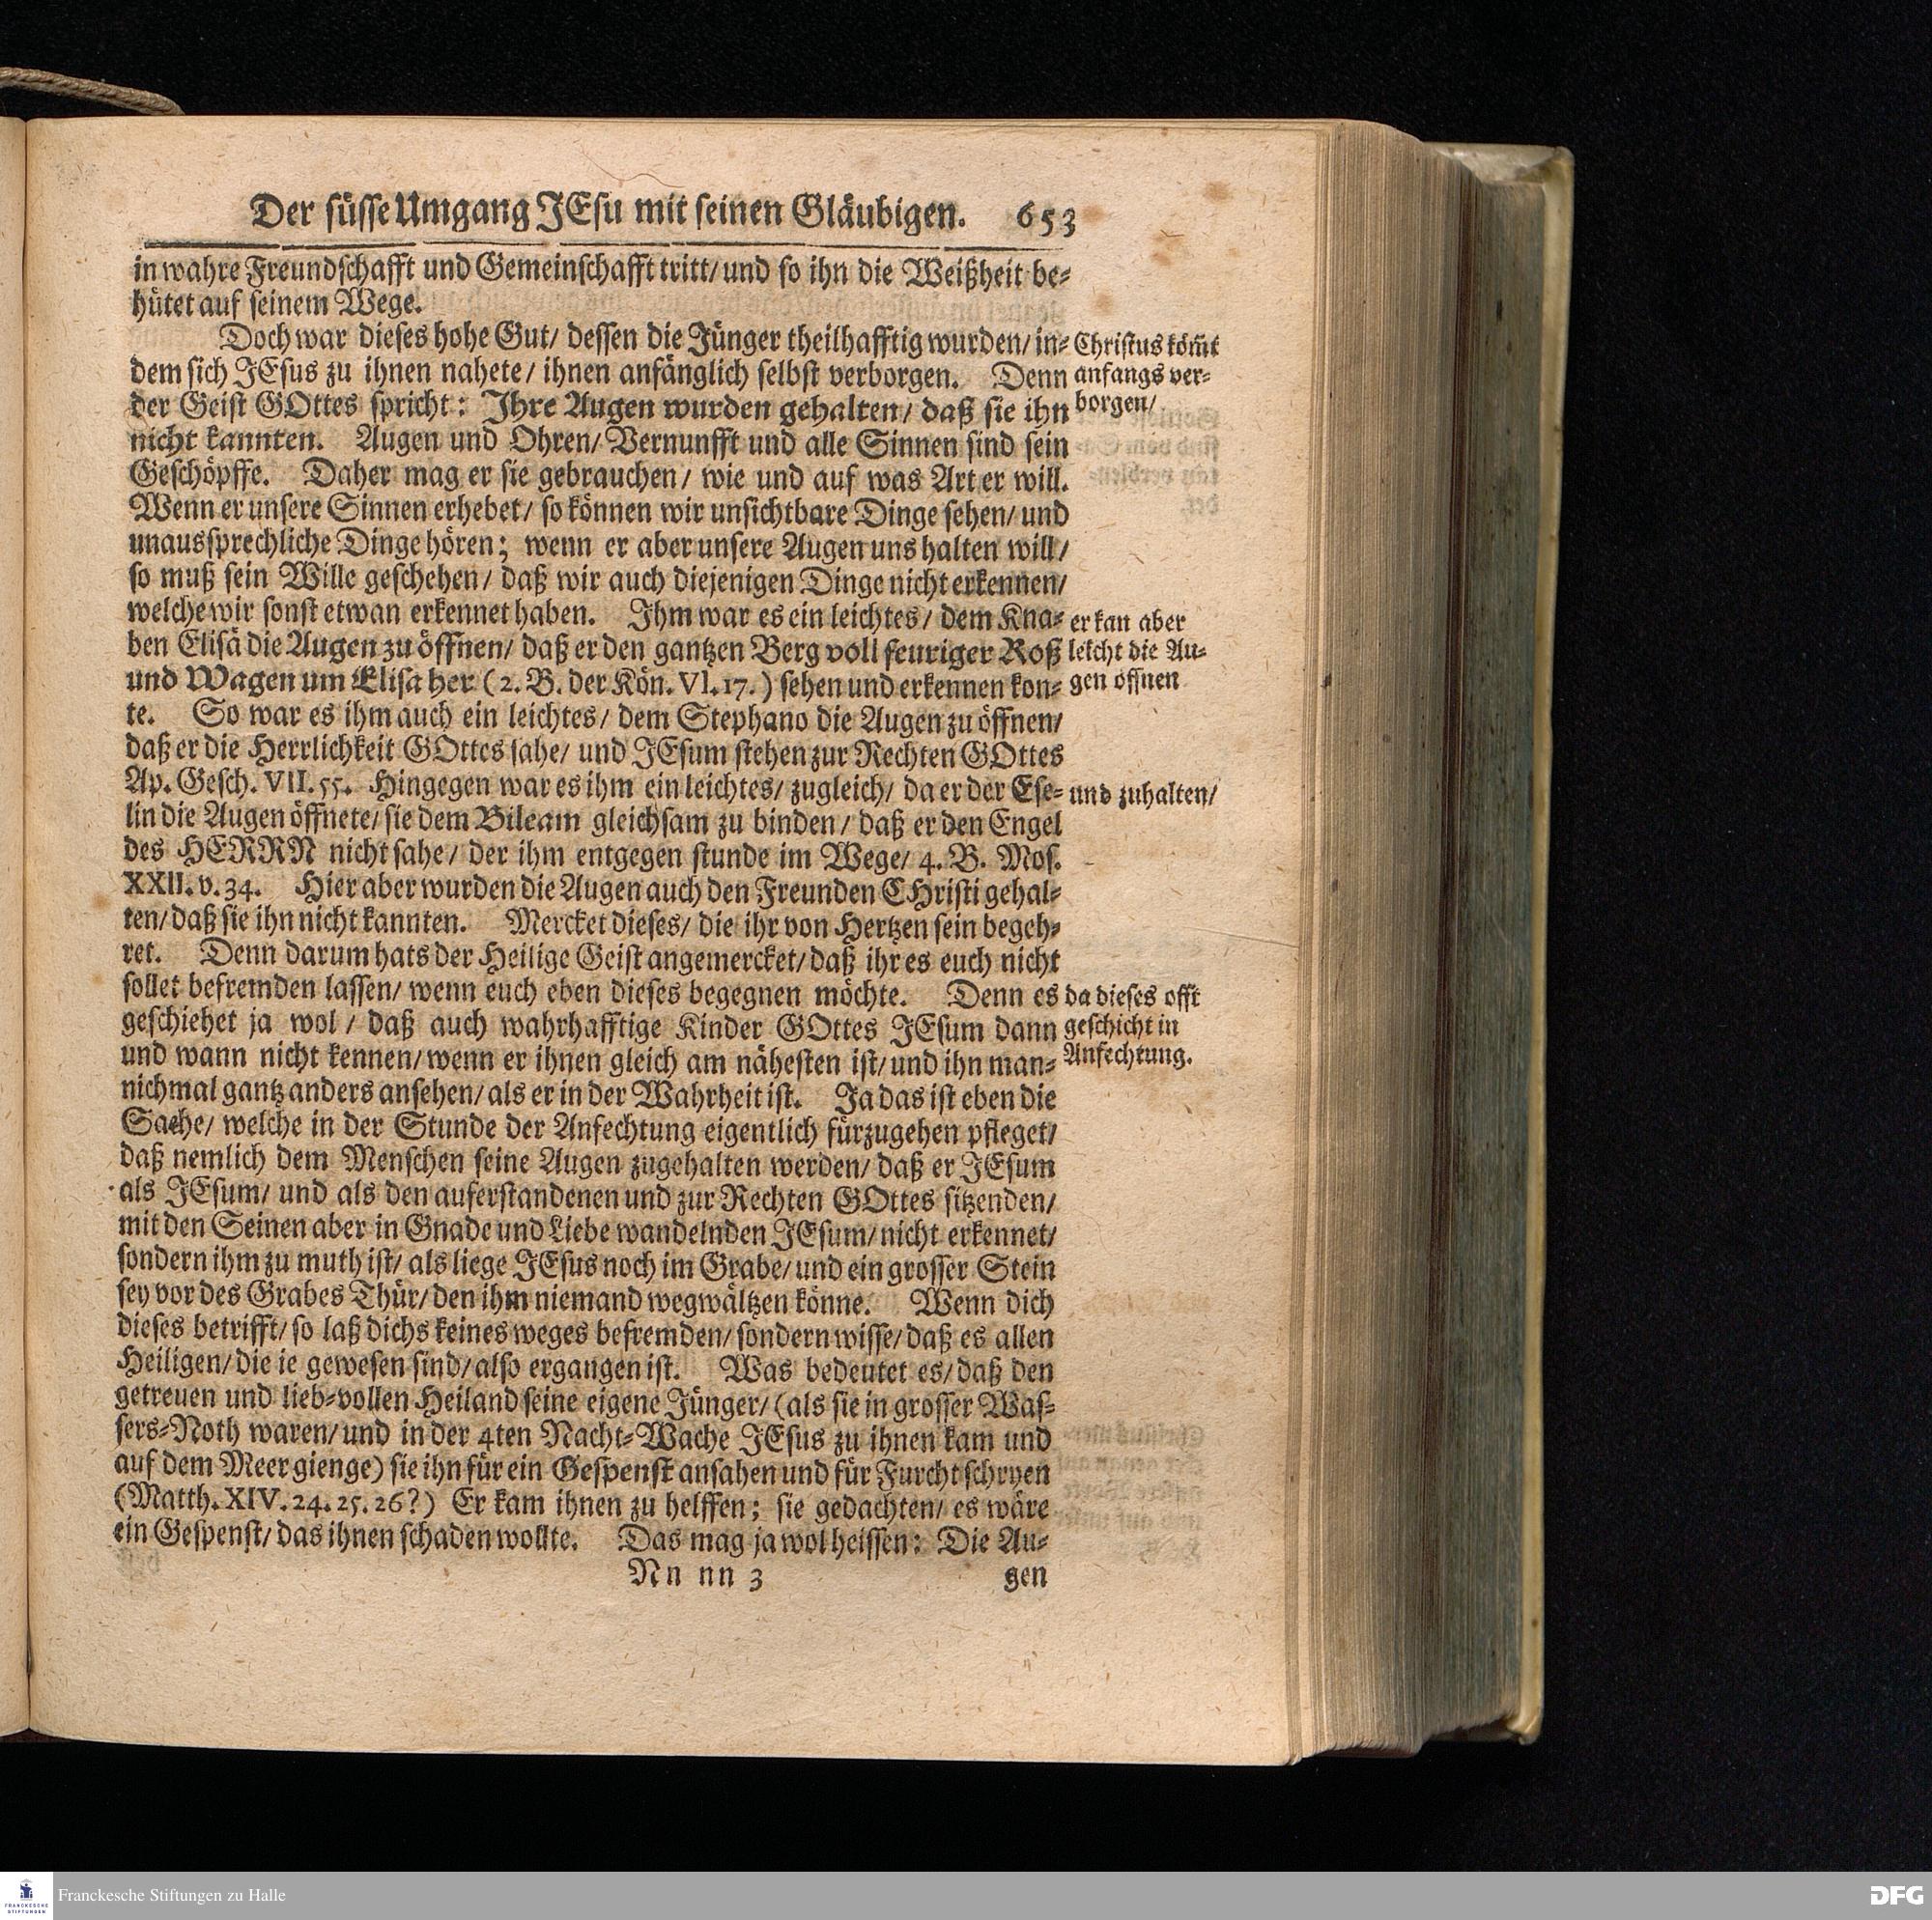 Der süsse Umgang JEsu mit seinen Gläubigen. 653
in wahre Freundschafft und Gemeinschafft tritt/ und so ihn die Weißheit be-
hütet auf seinem Wege.
Doch war dieses hohe Gut/ dessen die Jünger theilhafftig wurden/ in-
dem sich JEsus zu ihnen nahete/ ihnen anfänglich selbst verborgen. Denn
der Geist GOttes spricht: Ihre Augen wurden gehalten/ daß sie ihn
nicht kannten. Augen und Ohren/ Vernunfft und alle Sinnen sind sein
Geschöpffe. Daher mag er sie gebrauchen/ wie und auf was Art er will.
Wenn er unsere Sinnen erhebet/ so können wir unsichtbare Dinge sehen/ und
unaussprechliche Dinge hören; wenn er aber unsere Augen uns halten will/
so muß sein Wille geschehen/ daß wir auch diejenigen Dinge nicht erkennen/
welche wir sonst etwan erkennet haben. Ihm war es ein leichtes/ dem Kna-
ben Elisä die Augen zu öffnen/ daß er den gantzen Berg voll feuriger Roß
und Wagen um Elisa her (2. B. der Kön. VI. 17.) sehen und erkennen kon-
te. So war es ihm auch ein leichtes/ dem Stephano die Augen zu öffnen/
daß er die Herrlichkeit GOttes sahe/ und JEsum stehen zur Rechten GOttes
Ap. Gesch. VII. 55. Hingegen war es ihm ein leichtes/ zugleich/ da er der Ese-
lin die Augen öffnete/ sie dem Bileam gleichsam zu binden/ daß er den Engel
des HERRN nicht sahe/ der ihm entgegen stunde im Wege/ 4. B. Mos.
XXII. v. 34. Hier aber wurden die Augen auch den Freunden CHristi gehal-
ten/ daß sie ihn nicht kannten. Mercket dieses/ die ihr von Hertzen sein begeh-
ret. Denn darum hats der Heilige Geist angemercket/ daß ihr es euch nicht
sollet befremden lassen/ wenn euch eben dieses begegnen möchte. Denn es
geschiehet ja wol/ daß auch wahrhafftige Kinder GOttes JEsum dann
und wann nicht kennen/ wenn er ihnen gleich am nähesten ist/ und ihn man-
nichmal gantz anders ansehen/ als er in der Wahrheit ist. Ja das ist eben die
Sache/ welche in der Stunde der Anfechtung eigentlich fürzugehen pfleget/
daß nemlich dem Menschen seine Augen zugehalten werden/ daß er JEsum
als JEsum/ und als den auferstandenen und zur Rechten GOttes sitzenden/
mit den Seinen aber in Gnade und Liebe wandelnden JEsum/ nicht erkennet/
sondern ihm zu muth ist/ als liege JEsus noch im Grabe/ und ein grosser Stein
sey vor des Grabes Thür/ den ihm niemand wegwältzen könne. Wenn dich
dieses betrifft/ so laß dichs keines weges befremden/ sondern wisse/ daß es allen
Heiligen/ die ie gewesen sind/ also ergangen ist. Was bedeutet es/ daß den
getreuen und lieb-vollen Heiland seine eigene Jünger/ (als sie in grosser Was-
sers-Noth waren/ und in der 4ten Nacht-Wache JEsus zu ihnen kam und
auf dem Meer gienge) sie ihn für ein Gespenst ansahen und für Furcht schryen
(Matth. XIV. 24. 25. 26?) Er kam ihnen zu helffen; sie gedachten/ es wäre
ein Gespenst/ das ihnen schaden wollte. Das mag ja wol heissen: Die Au-
Nn nn 3 gen
Christus köm̃t
anfangs ver-
borgen/
er kan aber
leicht die Au-
gen öffnen
und zuhalten/
da dieses offt
geschicht in
Anfechtung.
FRANCKESCHE
STIFTUNGEN
Franckesche Stiftungen zu Halle
DFG